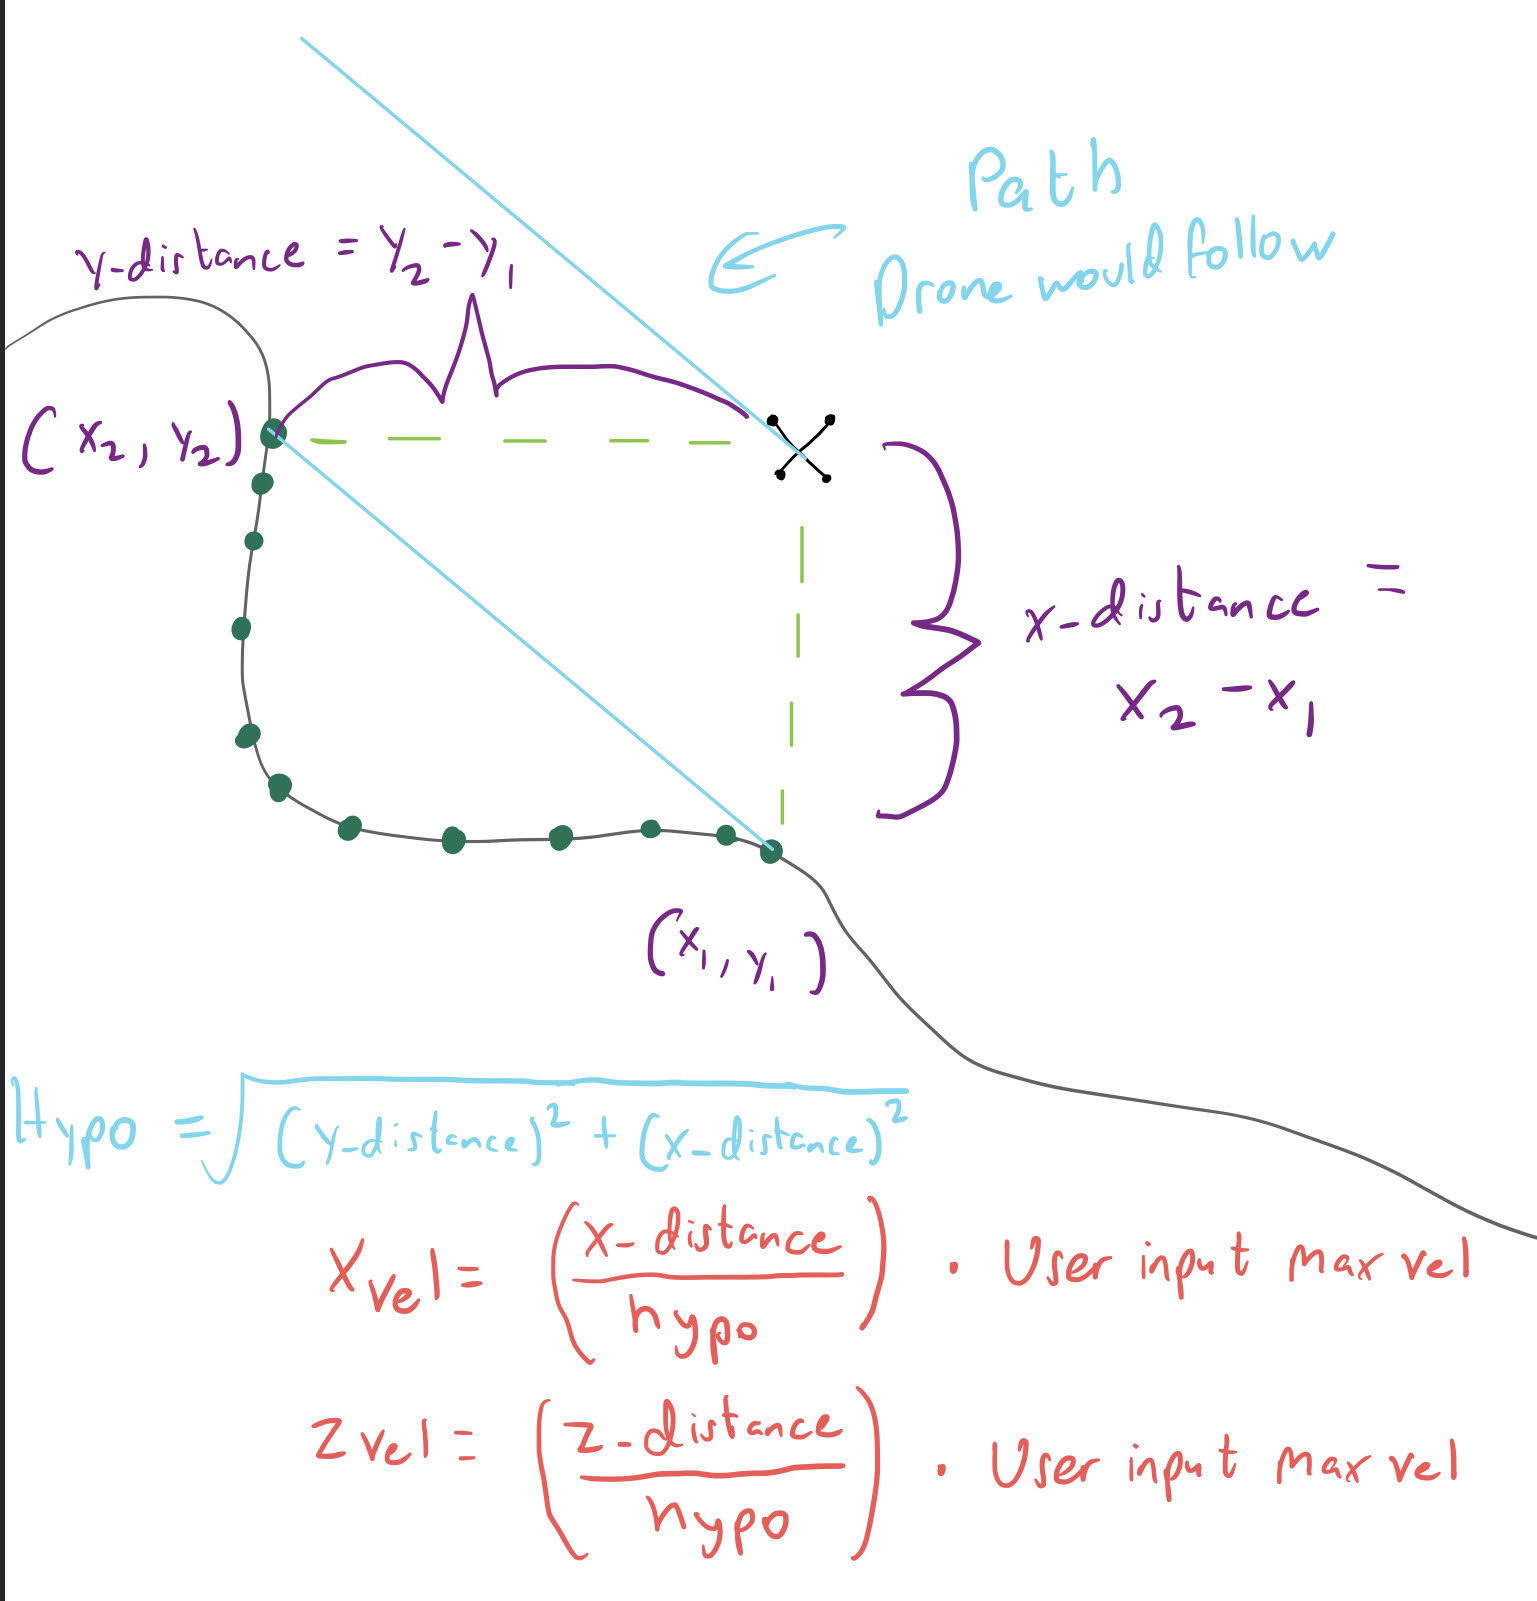 Path
Drone would follow
y-distance = y₂ - y₁
(x₂, y₂)
x-distance =
x₂ - x₁
(x₁, y₁)
Hypo = √((y-distance)² + (x-distance)²)
Xvel = (x-distance / hypo) · User input max vel
Zvel = (z-distance / hypo) · User input max vel